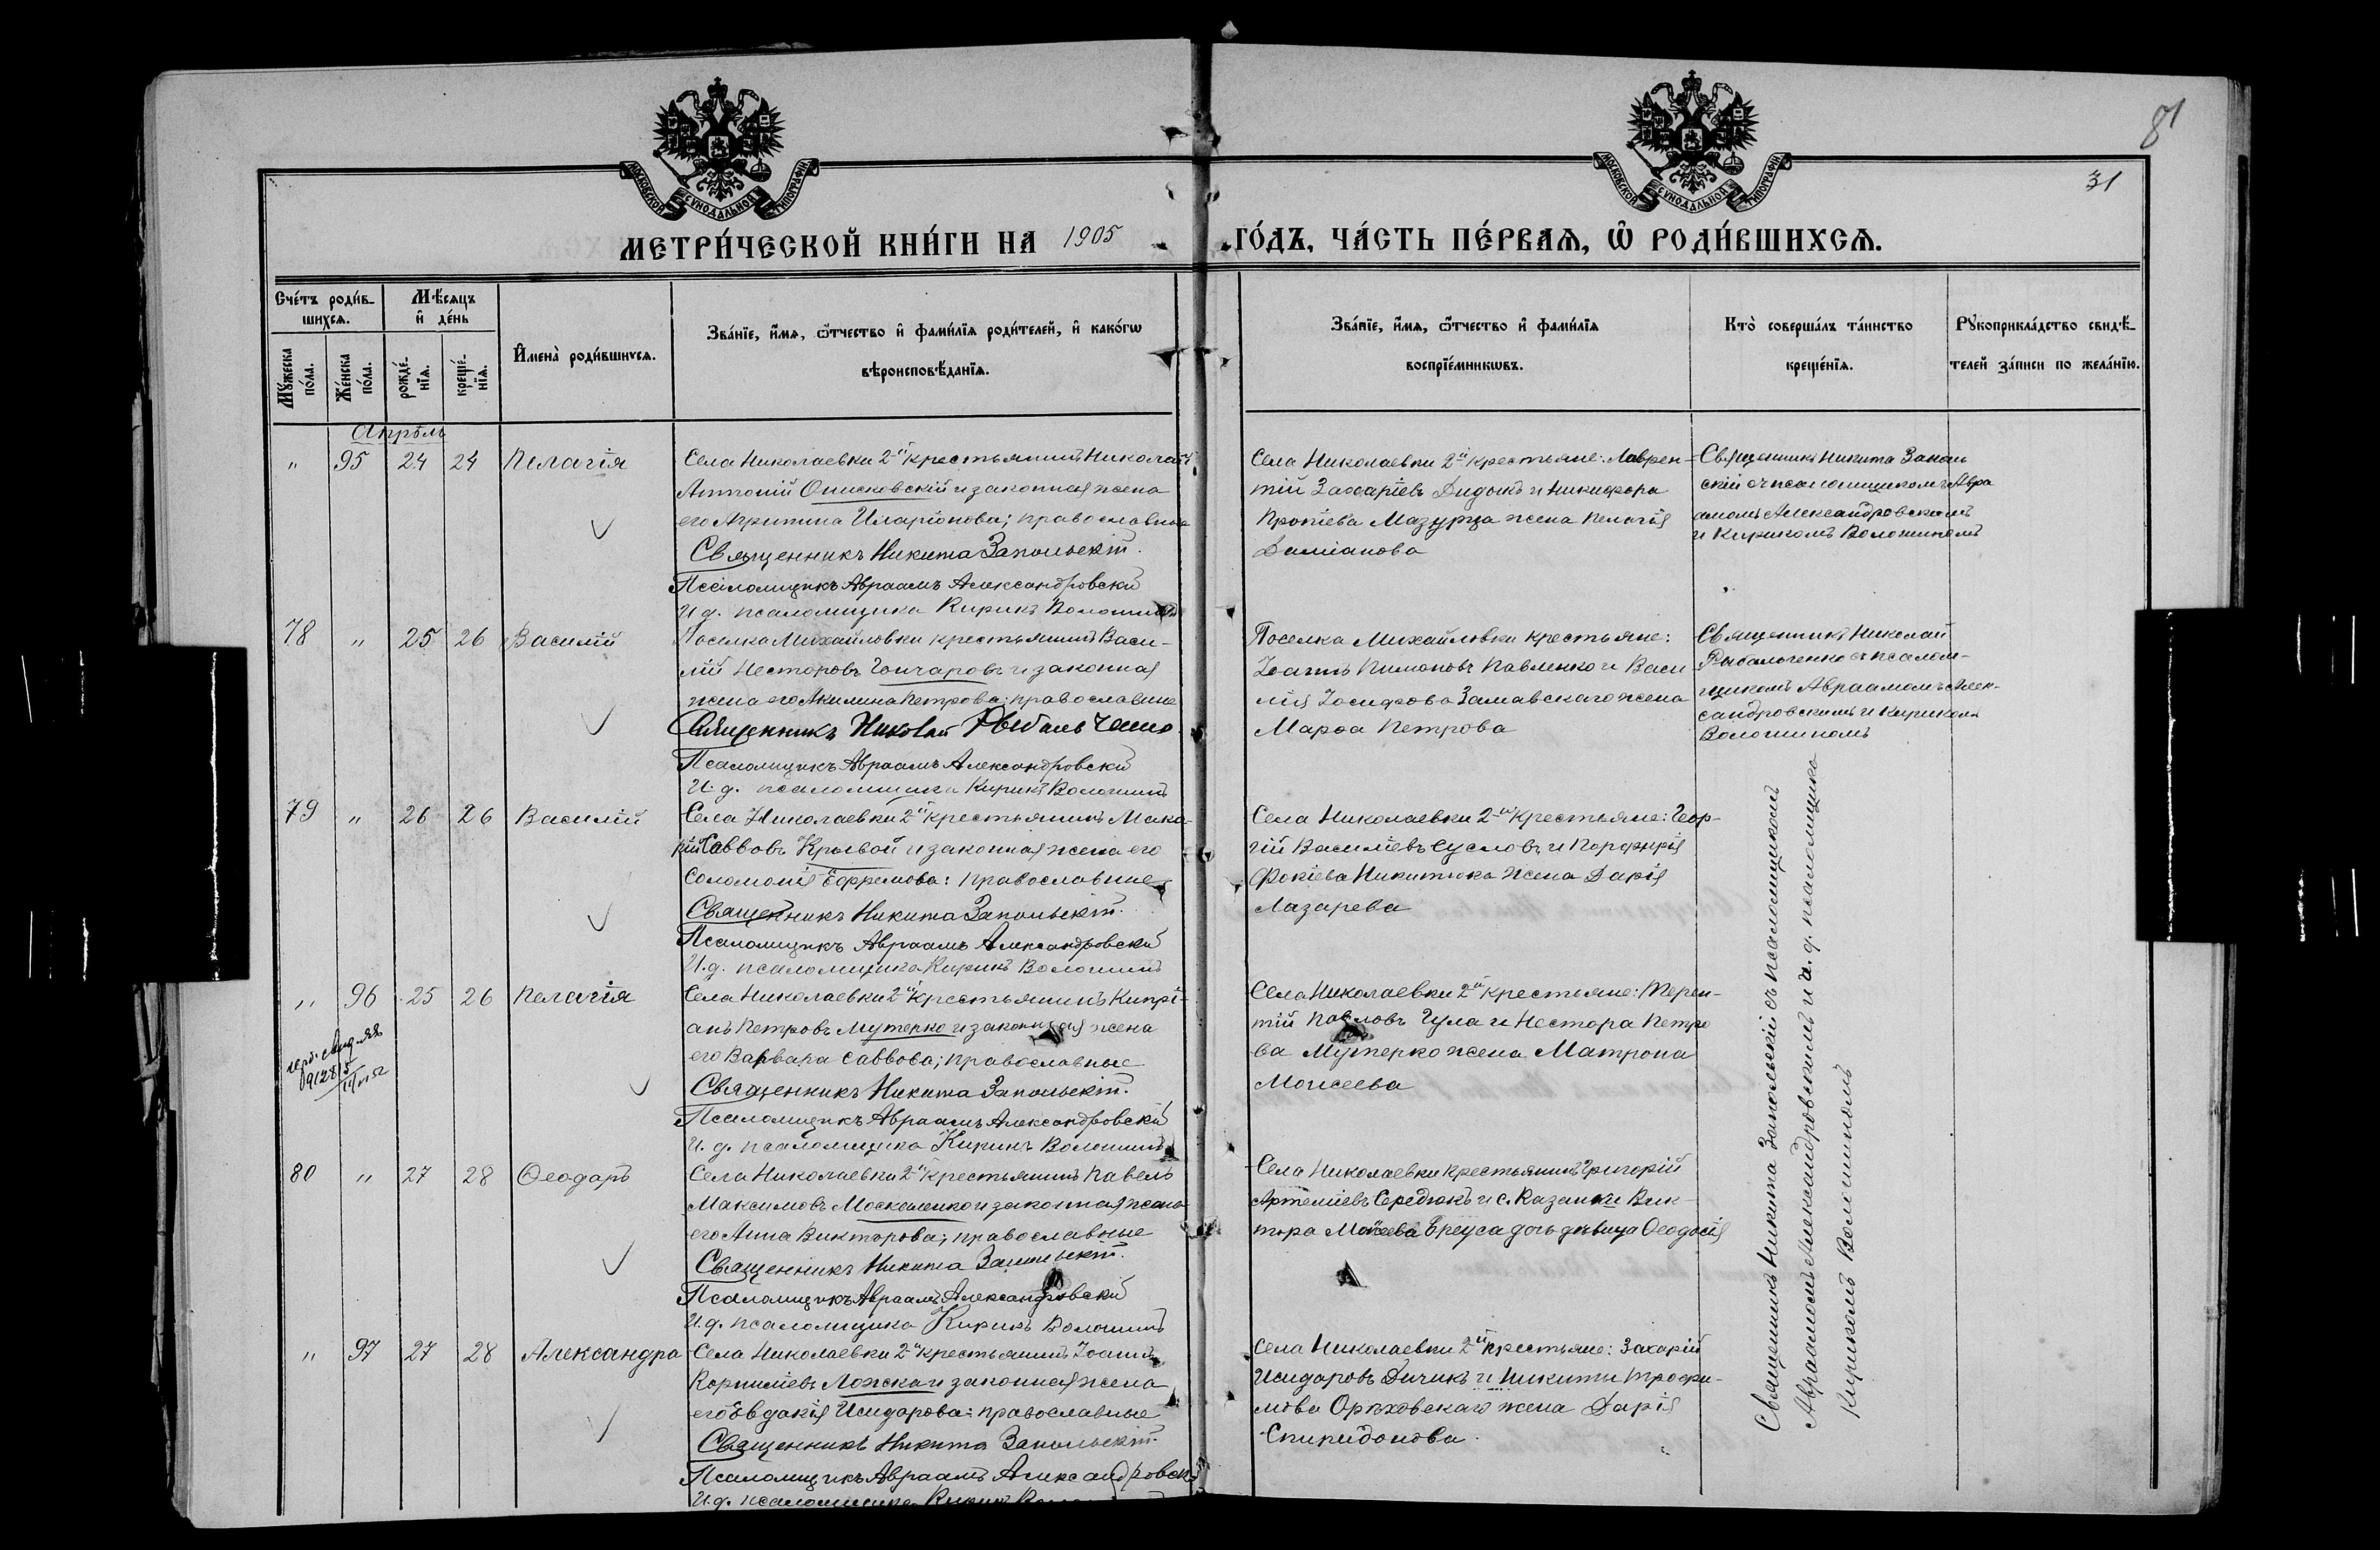 81
31
МОСКОВСКОЙ СѴНОДАЛЬНОЙ ТИПОГРАФІИ
МОСКОВСКОЙ СѴНОДАЛЬНОЙ ТИПОГРАФІИ
МЕТРИ́ЧЕСКОЙ КНИ́ГИ НА 1905 ГО́ДЪ, ЧА́СТЬ ПЕ́РВАѦ, Ѽ РОДИ́ВШИХСѦ.
Сче́тъ роди́в-
шихсѧ.
Мѣ́сѧцъ
и҆ де́нь
Мꙋ́жеска
по́ла.
Же́нска
по́ла.
рожде́-
нїѧ.
креще́-
нїѧ.
И҆мена̀ роди́вшихсѧ.
Зва́нїе, и҆́мѧ, ѻ҆́тчество и҆ фами́лїѧ роди́телей, и҆ како́гѡ
вѣроисповѣ́данїѧ.
Зва́нїе, и҆́мѧ, ѻ҆́тчество и҆ фами́лїѧ
воспрїе́мникѡвъ.
Кто̀ соверша́лъ та́инство
креще́нїѧ.
Рꙋкоприкла́дство свидѣ́-
телей за́писи по жела́нїю.
Апрѣль
" 95 24 24 Пелагія
Села Николаевки 2й крестьянинъ Николай
Антоній Онисковскій и законная жена
его Агрипина Иларіонова; православные
Священникъ Никита Запольскій.
Псаломщикъ Авраамъ Александровскій
И д. псаломщика Кирикъ Волошинъ
Села Николаевки 2й крестьяне: Лаврен-
тій Захаріевъ Дидыкъ и Никифора
Прокіева Мазурца жена Пелагія
Даміанова
Священникъ Никита Заполь
скій съ псаломщикомъ Авра
амомъ Александровскимъ
и Кирикомъ Волошиномъ
78 " 25 26 Василій
Поселка Михайловки крестьянинъ Васи-
лій Несторовъ Гончаровъ и законная
жена его Акилина Петрова; православные
Священникъ Николай Рыбальченко
Псаломщикъ Авраамъ Александровскій
И. д. псаломщика Кирикъ Волошинъ
Поселка Михайловки крестьяне:
Іоаннъ Пимоновъ Павленко и Васи
лія Іосифова Замавскаго жена
Марѳа Петрова
Священникъ Николай
Рыбальченко съ псалом-
щикомъ Авраамомъ Алек-
сандровскимъ и Кирикомъ
Волошиномъ
79 " 26 26 Василій
Села Николаевки 2й крестьянинъ Мака-
рій Саввовъ Крывой и законная жена его
Соломонія Ефремова: православные
Священникъ Никита Запольскій.
Псаломщикъ Авраамъ Александровскій
И.д. псаломщика Кирикъ Волошинъ
Села Николаевки 2й крестьяне: Геор-
гій Василіевъ Сусловъ и Порфирія
Фокіева Никитюка жена Дарія
Лазарева
" 96 25 26 Пелагія
Села Николаевки 2й крестьянинъ Кипрі-
анъ Петровъ Мутерко и законная жена
его Варвара Саввова; православные
Священникъ Никита Запольскій.
Псаломщикъ Авраамъ Александровскій
И. д. псаломщика Кирикъ Волошинъ
Села Николаевки 2й крестьяне: Терен-
тій Павловъ Гула и Нестора Петро
ва Мутерко жена Матрона
Моисеева
80 " 27 28 Ѳеодоръ
Села Николаевки 2й крестьянинъ Павелъ
Максимовъ Москаленко и законная жена
его Анна Викторова; православные
Священникъ Никита Запольскій.
Псаломщикъ Авраамъ Александровскій
И.д. псаломщика Кирикъ Волошинъ
Села Николаевки крестьянинъ Григорій
Артеміевъ Середюкъ и с. Казанки Вик-
тора Моисеева Бреуса дочь дѣвица Ѳеодосія
" 97 27 28 Александра
Села Николаевки 2й крестьянинъ Іоаннъ
Корниліевъ Ложка и законная жена
его Евдокія Исидорова: православные
Священникъ Никита Запольскій.
Псаломщикъ Авраамъ Александровскій
И.д. псаломщика Кирикъ
Села Николаевки 2й крестьяне: Захарій
Исидоровъ Дичикъ и Никиты Трофи-
мова Орѣховскаго жена Дарія
Спиридонова.
Священникъ Никита Запольскій съ псаломщикомъ
Авраамомъ Александровскимъ и и. д. псаломщика
Кирикомъ Волошиномъ